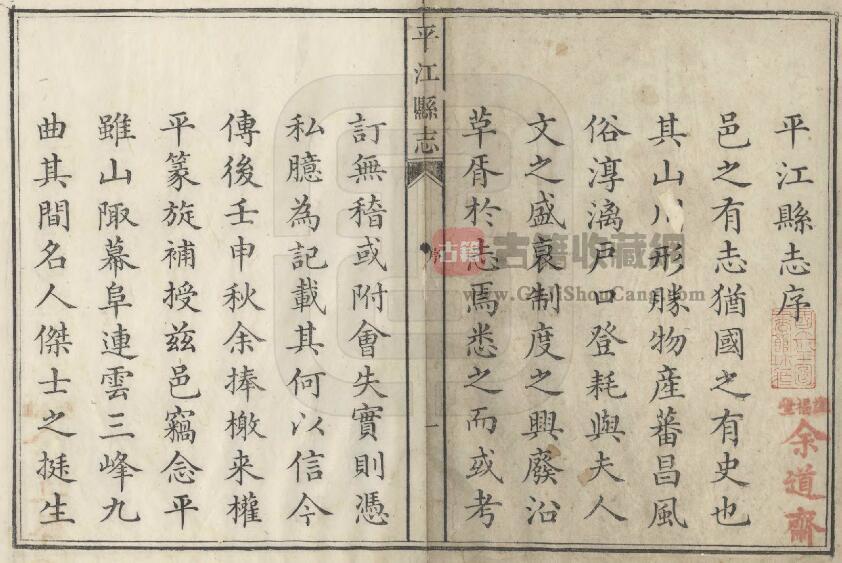 平江縣志序
邑之有志猶國之有史也
其山川形勝物産蕃昌風
俗淳漓戸口登耗與夫人
文之盛衰制度之興廢沿
草胥於志焉悉之而或考
平江縣志
序
一
訂無稽或附會失實則憑
私臆為記載其何以信今
傳後壬申秋余捧檄來權
平篆旋補授兹邑竊念平
雖山陬幕阜連雲三峰九
曲其間名人傑士之挺生
余道齋
古籍
古籍收藏網
www.GujiShouCang.com